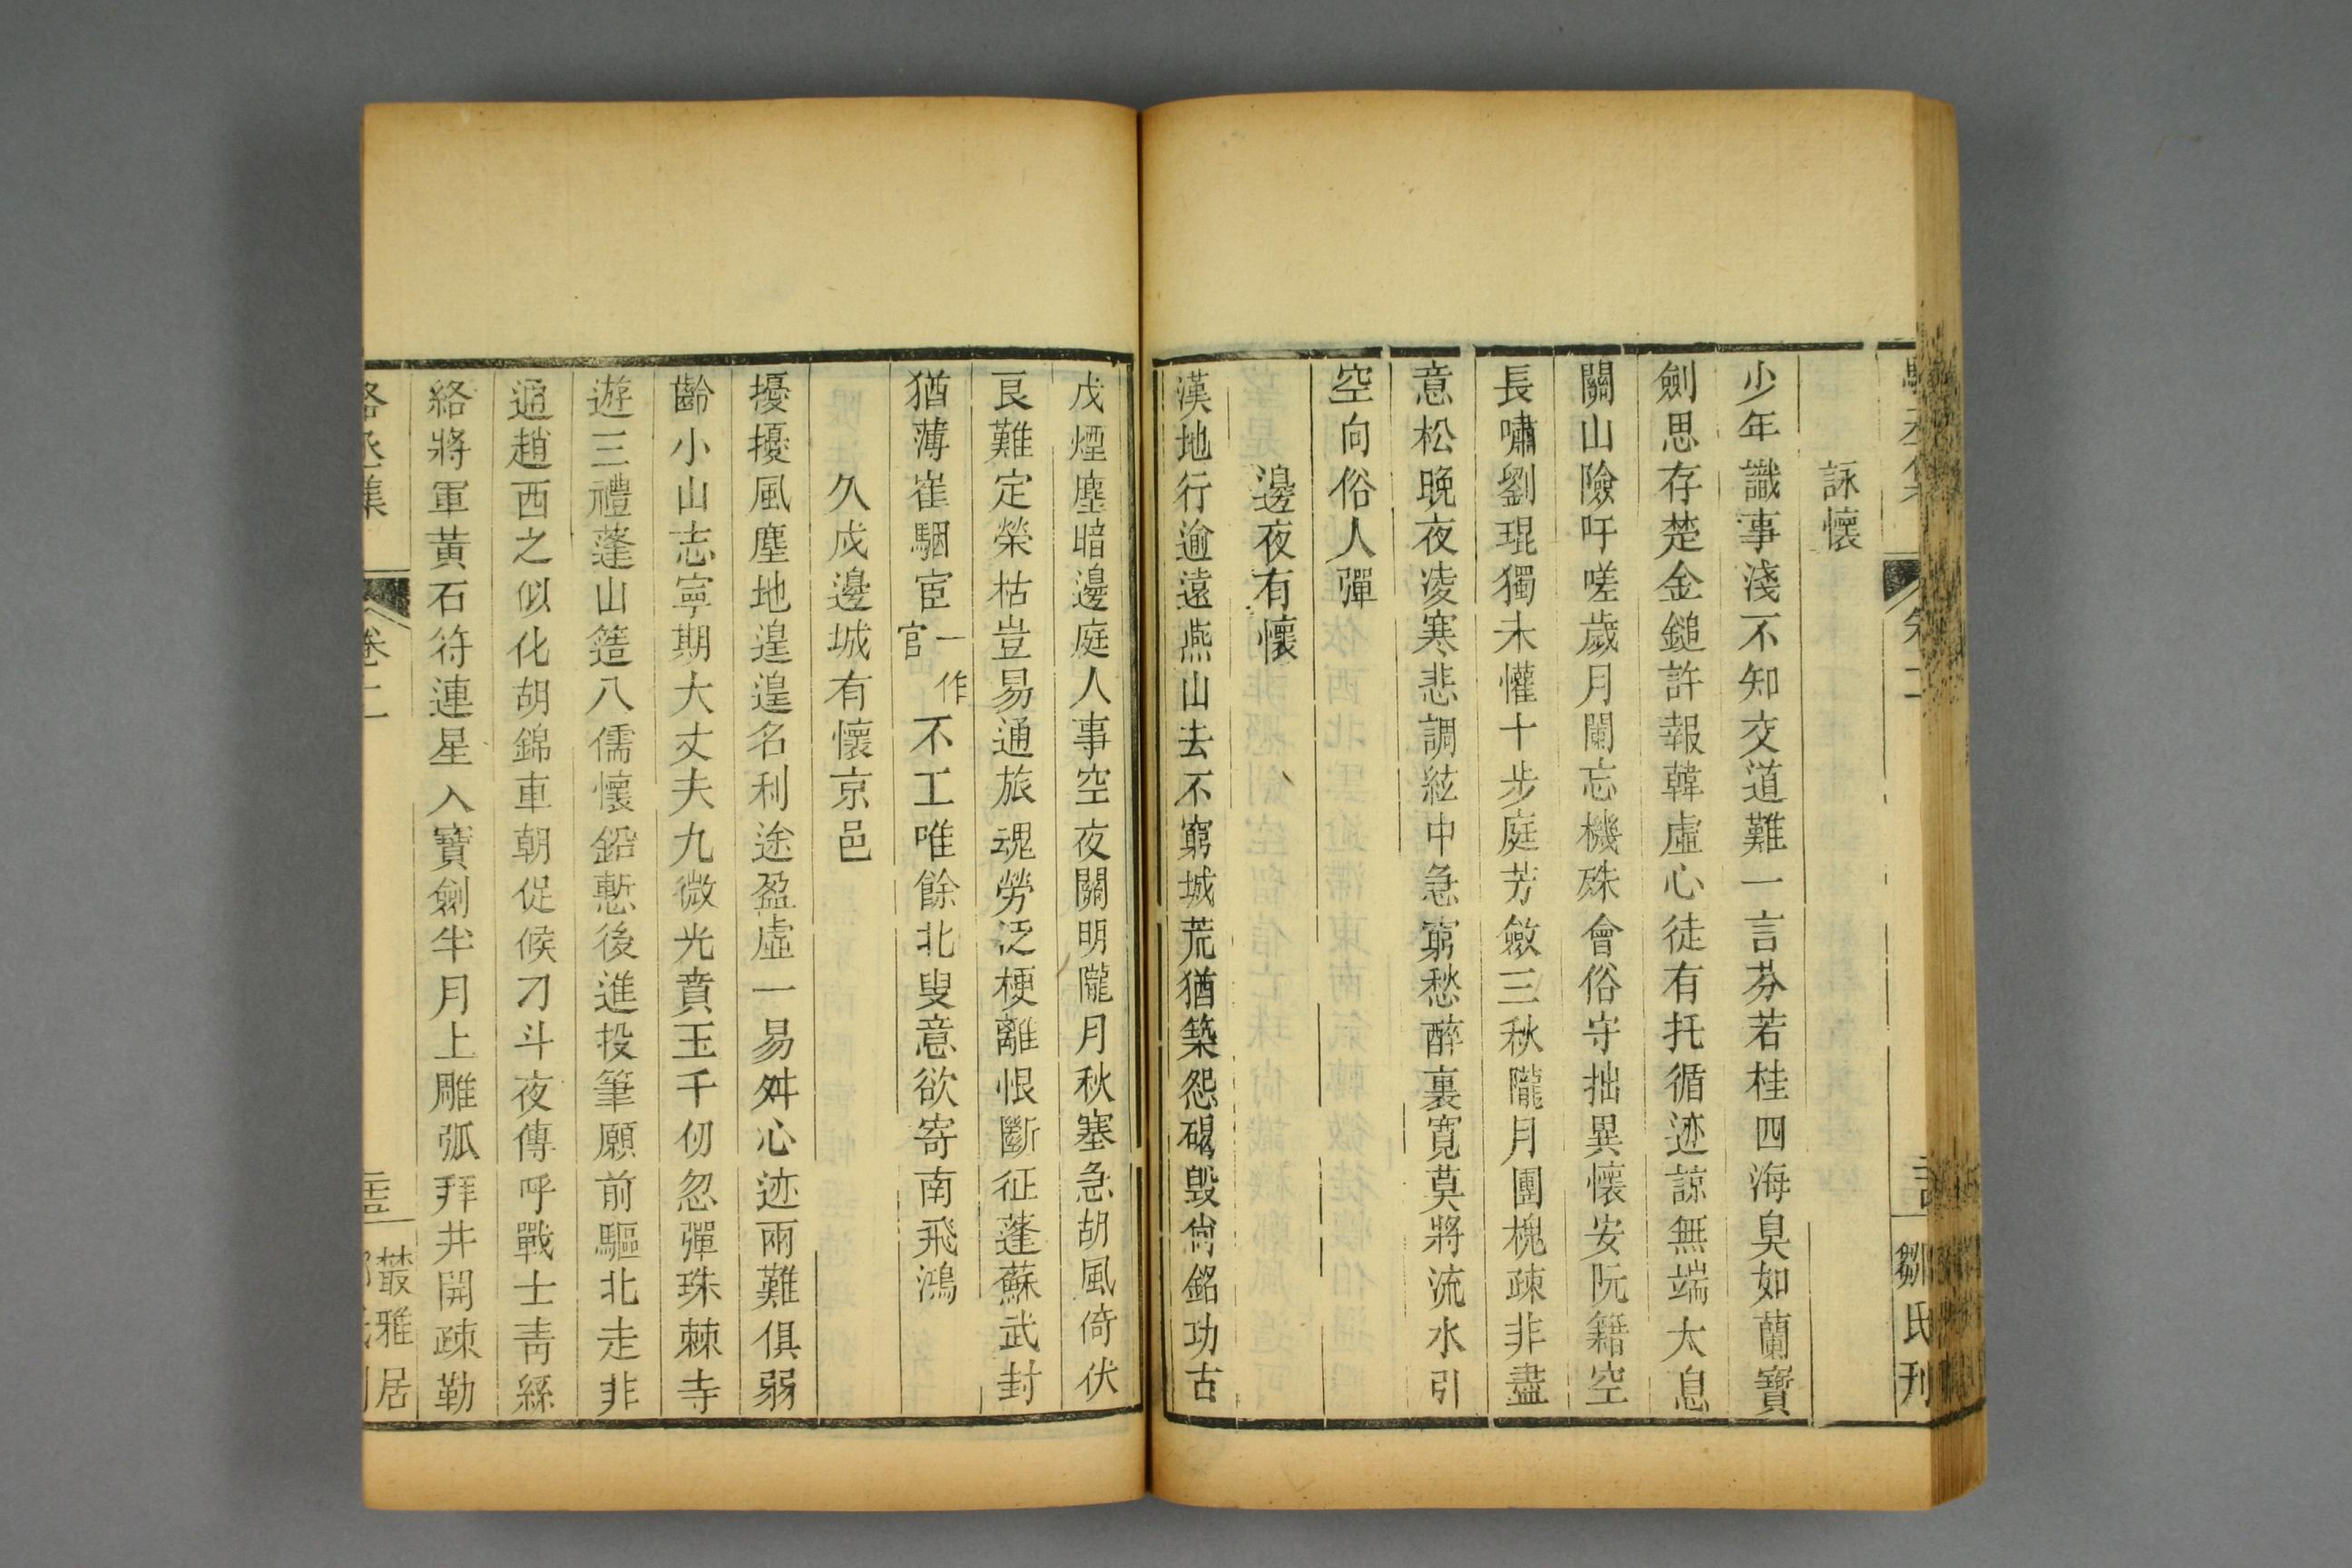 鄒氏刋
詠懷
少年識事淺不知交道難一言芬若桂四海臭如蘭寶
劍思存楚金鎚許報韓虛心徒有托循迹諒無端太息
關山險吁嗟歲月闌忘機殊會俗守拙異懷安阮籍空
長嘯劉琨獨未懽十步庭芳斂三秋隴月團槐疎非盡
意松晚夜凌寒悲調絃中急窮愁醉裏寬莫將流水引
空向俗人彈
邊夜有懷
漢地行逾遠燕山去不窮城荒猶築怨碣毀尙銘功古
戍煙塵暗邊庭人事空夜關明隴月秋塞急胡風倚伏
艮難定榮枯豈易通旅魂勞泛梗離恨斷征蓬蘇武封
猶薄崔駰宦一作官不工唯餘北叟意欲寄南飛鴻
久戍邊城有懷京邑
擾擾風塵地遑遑名利途盈虛一易舛心迹兩難俱弱
齡小山志寧期大丈夫九微光賁玉千仞忽彈珠棘寺
遊三禮蓬山簉八儒懷鉛慙後進投筆願前驅北走非
通趙西之似化胡錦車朝促候刁斗夜傳呼戰士靑絲
絡將軍黃石符連星入寶劍半月上雕弧拜井開疎勒
丞集 卷二 叢雅居